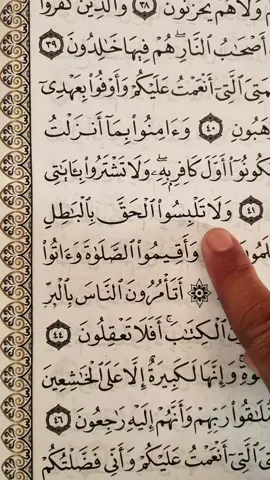 وَلَا هُمْ يَحْزَنُونَ ٣٨ وَٱلَّذِينَ كَفَرُوا۟
أَصْحَٰبُ ٱلنَّارِ ۖ هُمْ فِيهَا خَٰلِدُونَ ٣٩
ٱلَّتِىٓ أَنْعَمْتُ عَلَيْكُمْ وَأَوْفُوا۟ بِعَهْدِىٓ
٤٠ وَءَامِنُوا۟ بِمَآ أَنزَلْتُ
تَكُونُوٓا۟ أَوَّلَ كَافِرٍۭ بِهِۦ ۖ وَلَا تَشْتَرُوا۟ بِـَٔايَٰتِى
٤١ وَلَا تَلْبِسُوا۟ ٱلْحَقَّ بِٱلْبَٰطِلِ
وَأَقِيمُوا۟ ٱلصَّلَوٰةَ وَءَاتُوا۟
۞ أَتَأْمُرُونَ ٱلنَّاسَ بِٱلْبِرِّ
ٱلْكِتَٰبَ ۚ أَفَلَا تَعْقِلُونَ ٤٤
وَإِنَّهَا لَكَبِيرَةٌ إِلَّا عَلَى ٱلْخَٰشِعِينَ
مُّلَٰقُوا۟ رَبِّهِمْ وَأَنَّهُمْ إِلَيْهِ رَٰجِعُونَ ٤٦
ٱلَّتِىٓ أَنْعَمْتُ عَلَيْكُمْ وَأَنِّى فَضَّلْتُكُمْ